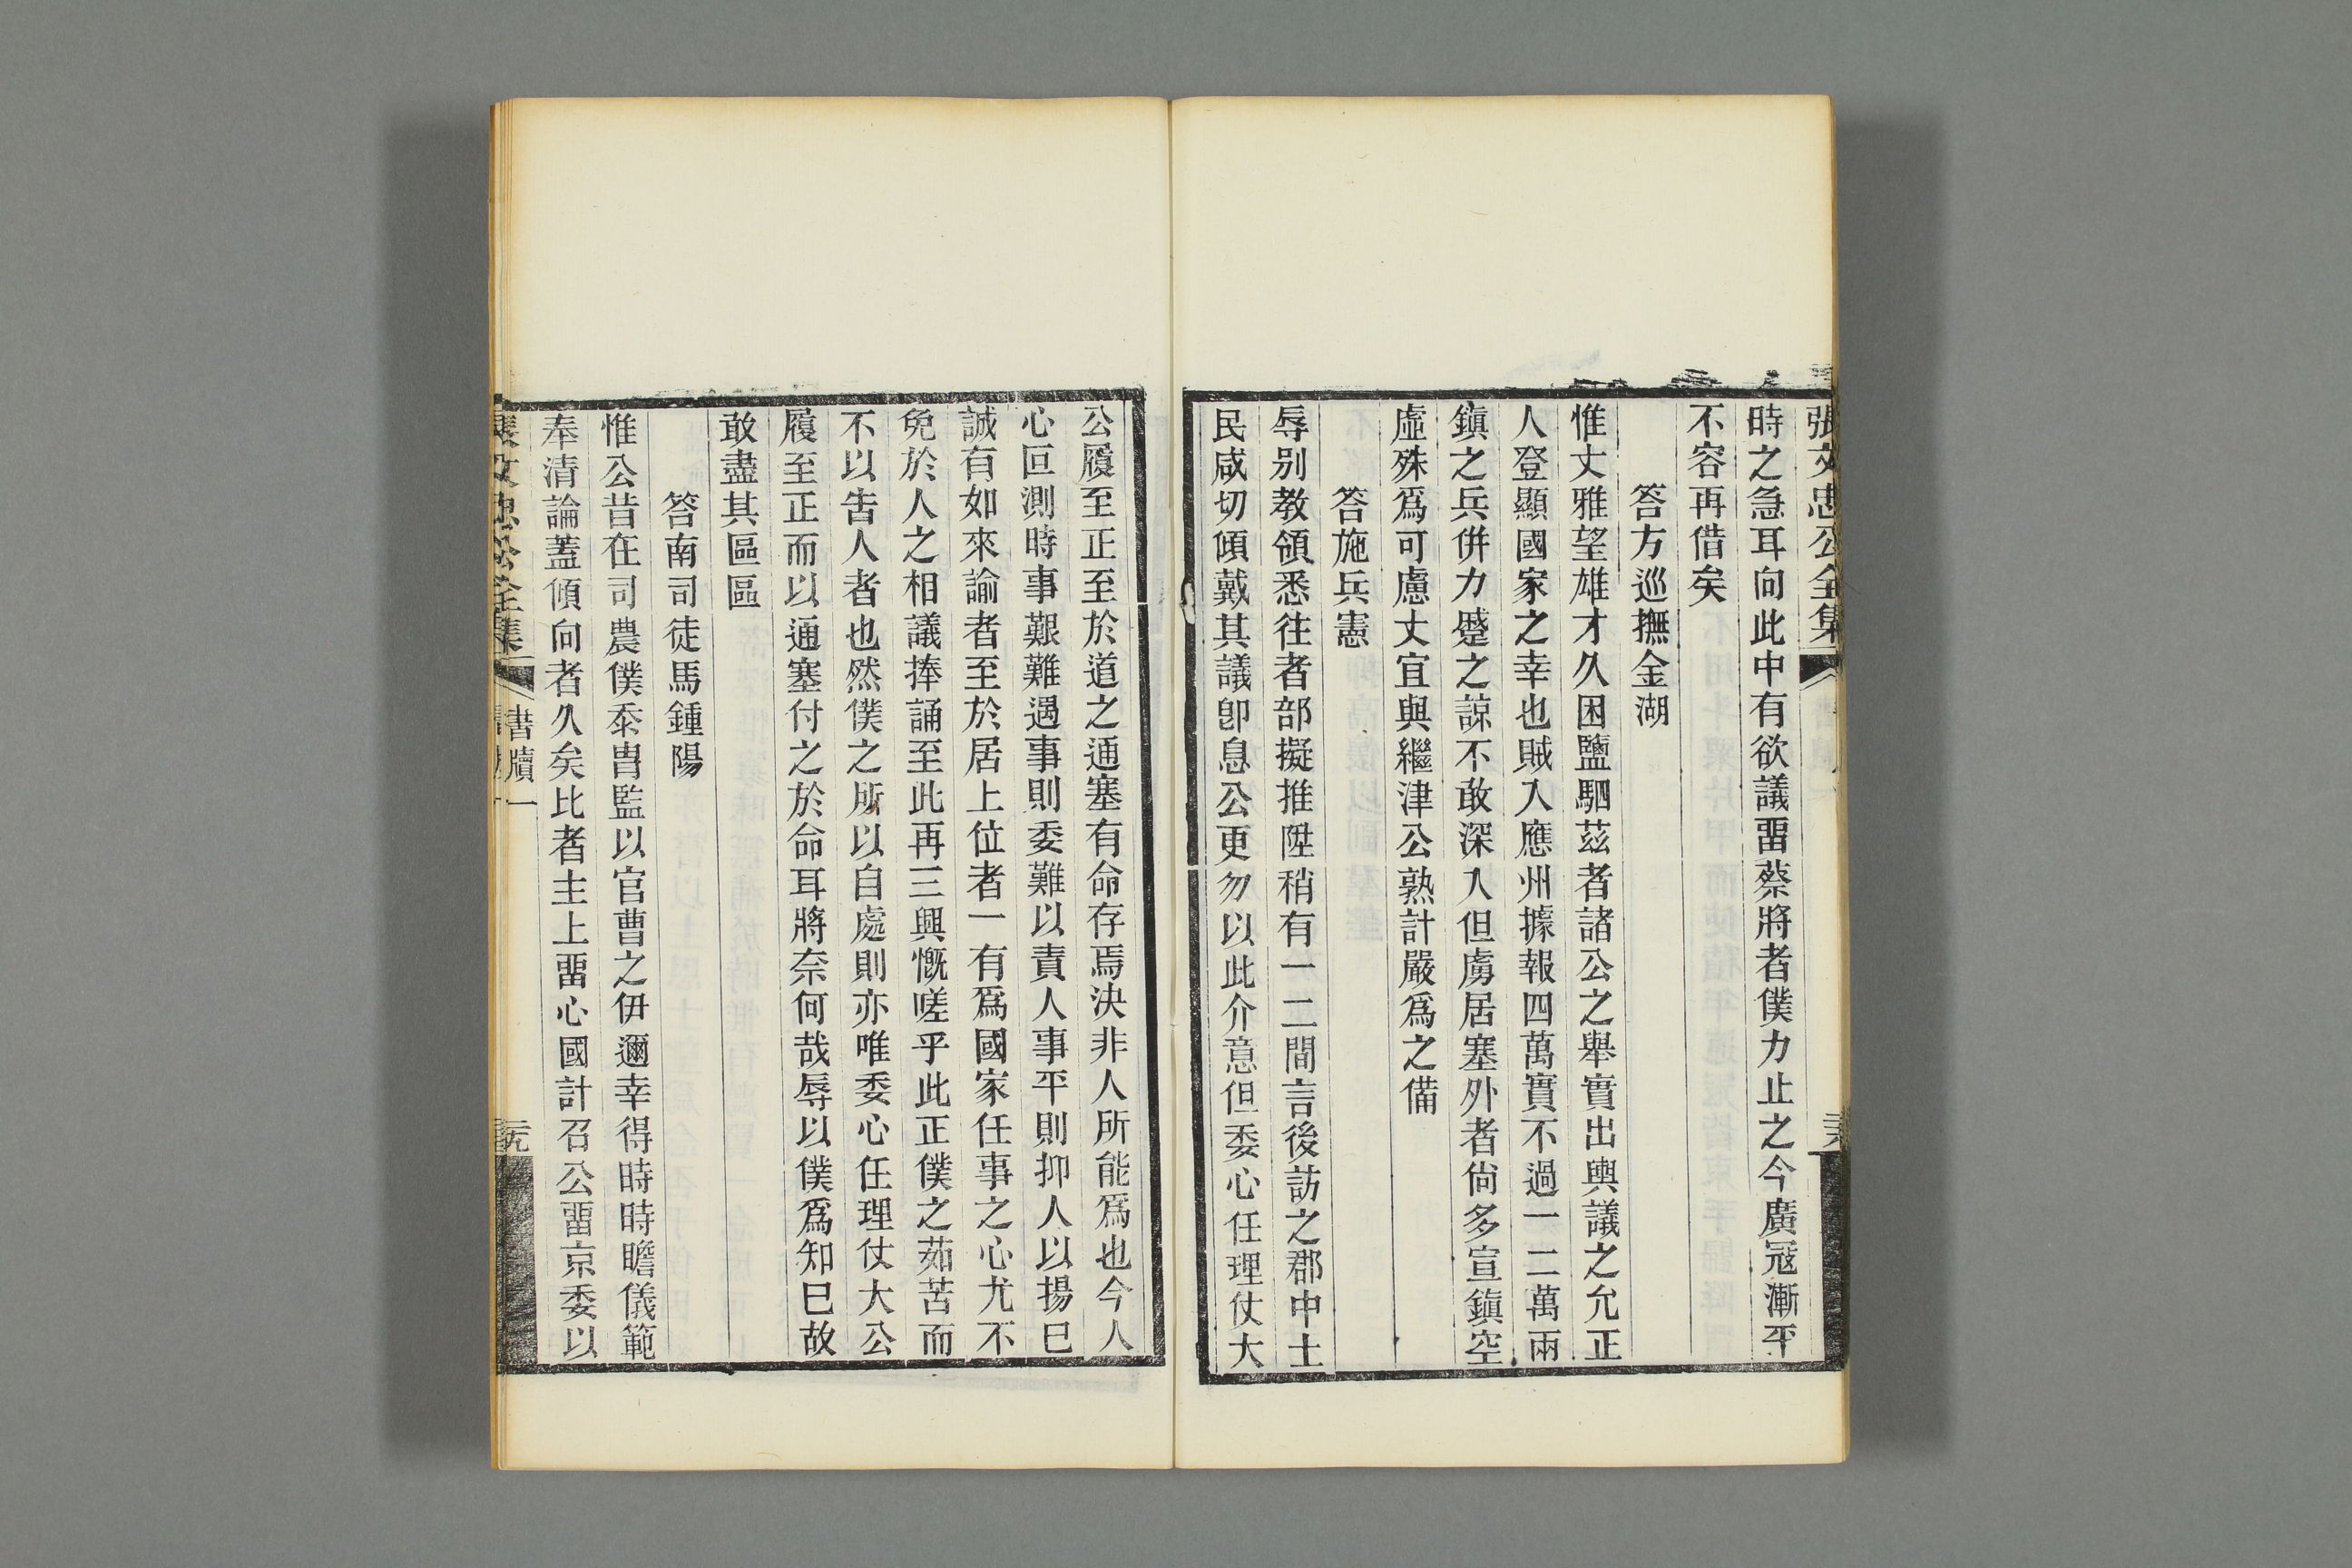 張文忠公全集
時之急耳向此中有欲議畱蔡將者僕力止之今廣冦漸平
不容再借矣
答方巡撫金湖
惟丈雅望雄才久困鹽駟茲者諸公之舉實出輿議之允正
人登顯國家之幸也賊入應州據報四萬實不過一二萬兩
鎮之兵併力蹙之諒不敢深入但虜居塞外者尙多宣鎮空
虛殊爲可慮丈宜與繼津公熟計嚴爲之備
答施兵憲
辱别教領悉往者部擬推陞稍有一二間言後訪之郡中士
民咸切傾戴其議卽息公更勿以此介意但委心任理仗大
公履至正至於道之通塞有命存焉決非人所能爲也今人
心叵測時事艱難遇事則委難以責人事平則抑人以揚巳
誠有如來諭者至於居上位者一有爲國家任事之心尤不
免於人之相議捧誦至此再三興慨嗟乎此正僕之茹苦而
不以吿人者也然僕之所以自處則亦唯委心任理仗大公
履至正而以通塞付之於命耳將奈何哉辱以僕爲知巳故
敢盡其區區
答南司徒馬鍾陽
惟公昔在司農僕忝胄監以官曹之伊邇幸得時時瞻儀範
奉清論蓋傾向者久矣比者主上畱心國計召公畱京委以
張文忠公全集 書牘一 二九